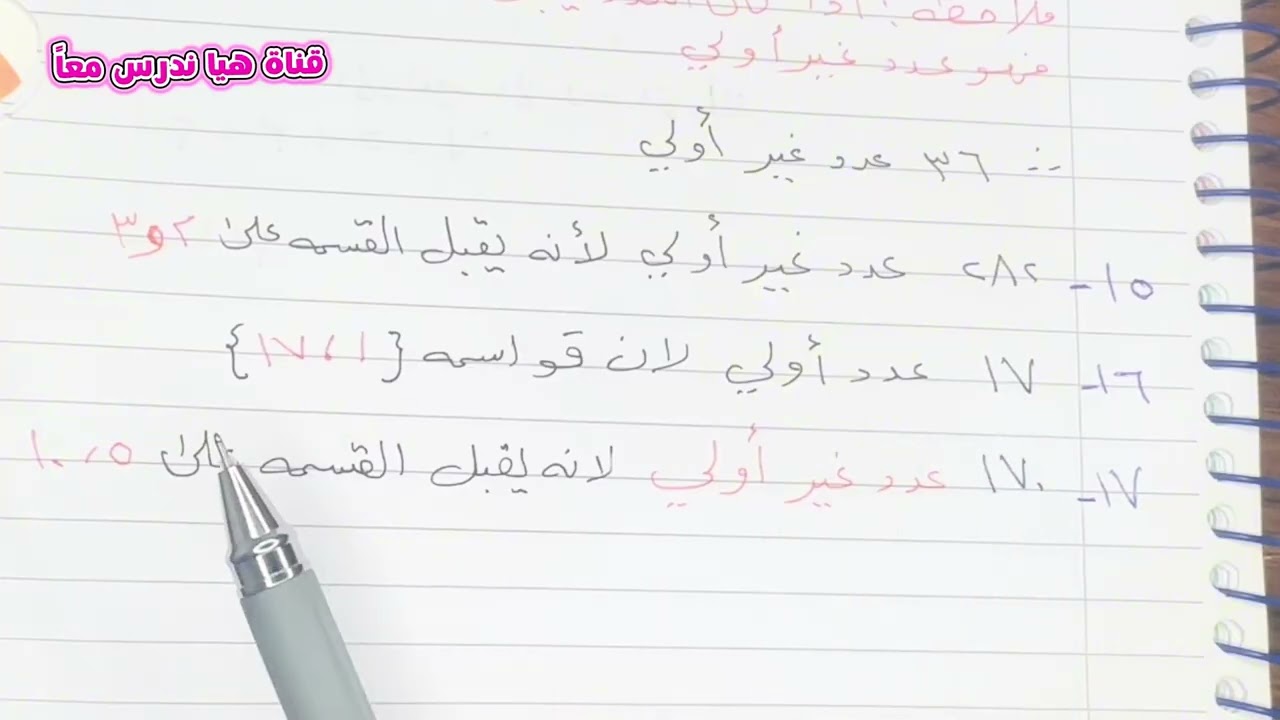 قناة هيا ندرس معاً
ملاحظة: اذا كان
فهو عدد غير أولي
∴ ٣٦ عدد غير أولي
١٥- ٢٨٢ عدد غير أولي لأنه يقبل القسمه على ٢ و ٣
١٦- ١٧ عدد أولي لان قواسمه {١، ١٧}
١٧- ١٧٠ عدد غير أولي لانه يقبل القسمه على ٥، ١٠